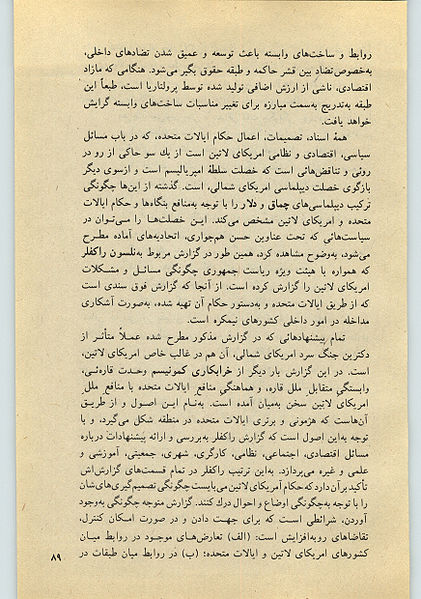 روابط و ساخت‌های وابسته باعث توسعه و عمیق شدن تضادهای داخلی،
به‌خصوص تضاد بین قشر حاکمه و طبقه حقوق بگیر می‌شود. هنگامی که مازاد
اقتصادی، ناشی از ارزش اضافی تولید شده توسط پرولتاریا است، طبعاً این
طبقه به‌تدریج به‌سمت مبارزه برای تغییر مناسبات ساخت‌های وابسته گرایش
خواهد یافت.
همهٔ اسناد، تصمیمات، اعمال حکام ایالات متحده، که در باب مسائل
سیاسی، اقتصادی و نظامی امریکای لاتین است از یك سو حاکی از رو در
روئی و تناقض‌هائی است که خصلت سلطهٔ امپریالیسم است و ازسوی دیگر
بازگوی خصلت دیپلماسی امریکای شمالی، است. گذشته از این‌ها چگونگی
ترکیب دیپلماسی‌های چماق و دلار را با توجه به‌منافع بنگاه‌ها و حکام ایالات
متحده و امریکای لاتین مشخص می‌کند. این خصلت‌ها را می‌توان در
سیاست‌هائی که تحت عناوین حسن هم‌جواری، اتحادیه‌های آماده مطرح
می‌شود، به‌وضوح مشاهده کرد، همین طور در گزارش مربوط به‌نلسون راکفلر
که همواره با هیئت ویژه ریاست جمهوری چگونگی مسائل و مشکلات
امریکای لاتین را گزارش کرده است. از آنجا که گزارش فوق سندی است
که از طریق ایالات متحده و به‌دستور حکام آن تهیه شده، به‌صورت آشکاری
مداخله در امور داخلی کشورهای نیمکره است.
تمام پیشنهادهائی که در گزارش مذکور مطرح شده عملاً متأثر از
دکترین جنگ سرد امریکای شمالی، آن هم در غالب خاص امریکای لاتین،
است. در این گزارش بار دیگر از خرابکاری کمونیسم وحدت قاره‌ئی،
وابستگی متقابل ملل قاره، و هماهنگی منافع ایالات متحده با منافع ملل
امریکای لاتین سخن به‌میان آمده است. به‌نام این اصول و از طریق
آن‌هاست که هژمونی و برتری ایالات متحده در منطقه شکل می‌گیرد، و با
توجه به‌این اصول است که گزارش راکفلر به‌بررسی و ارائه پیشنهادات درباره
مسائل اقتصادی، اجتماعی، نظامی، کارگری، شهری، جمعیتی، آموزشی و
علمی و غیره می‌پردازد. به‌این ترتیب راکفلر در تمام قسمت‌های گزارش‌اش
تأکید بر آن دارد که حکام امریکای لاتین می‌بایست چگونگی تصمیم‌گیری‌های‌شان
را با توجه به‌چگونگی اوضاع و احوال درك کنند. گزارش متوجه چگونگی به‌وجود
آوردن، شرائطی است که برای جهت دادن و در صورت امکان کنترل،
تقاضاهای روبه‌افزایش است: (الف) تعارض‌های موجود در روابط میان
کشورهای امریکای لاتین و ایالات متحده؛ (ب) در روابط میان طبقات در
۸۹